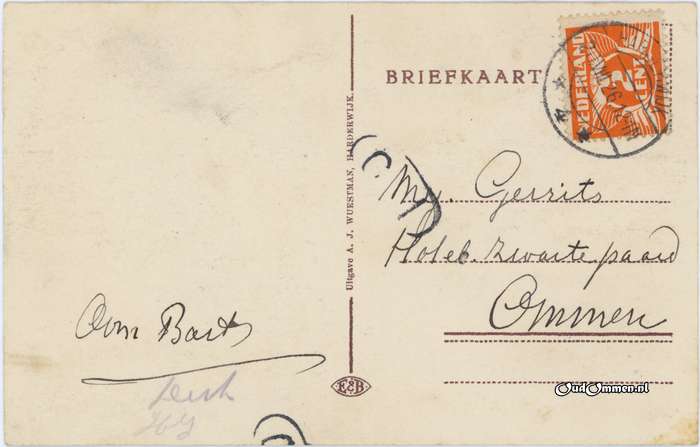 BRIEFKAART
NEDERLAND
2
CENT
Mej. Gerrits
Hotel Zwarte paard
Ommen
Uitgave A. J. WUESTMAN, HARDERWIJK.
Oom Bart
E&B
OudOmmen.nl